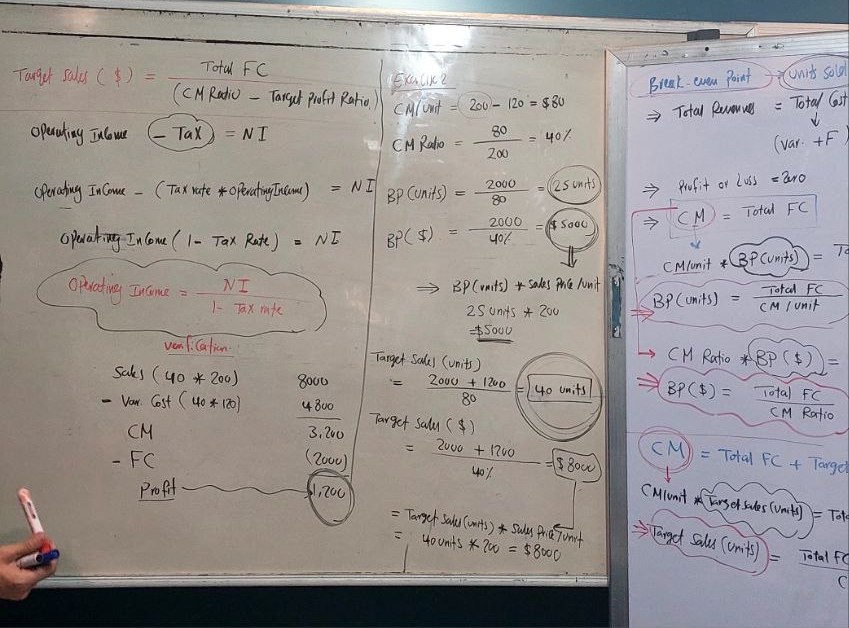 Target Sales ($) = Total FC
(CM Ratio - Target Profit Ratio)
Operating Income - Tax = NI
Operating Income - (Tax rate * Operating Income) = NI
Operating Income (1- Tax Rate) = NI
Operating Income = NI
1- Tax rate
verification
Sales (40 * 200) 8000
- Var. Cost (40 * 120) 4800
CM 3,200
- FC (2000)
Profit 1,200
Exercise 2
CM/unit = 200 - 120 = $80
CM Ratio = 80
200
= 40%
BP(units) = 2000
80
= 25 units
BP($) = 2000
40%
= $5000
⇒ BP(units) * Sales Price/unit
25 units * 200
= $5000
Target Sales (units)
= 2000 + 1200
80
= 40 units
Target Sales ($)
= 2000 + 1200
40%
= $8000
= Target Sales(units) * Sales Price/unit
= 40 units * 200 = $8000
Break-even Point → units sold
⇒ Total Revenues = Total Cost
↓
(var. + F
⇒ Profit or Loss = Zero
⇒ CM = Total FC
CM/unit * BP(units) = To
⇒ BP(units) = Total FC
CM/unit
→ CM Ratio * BP($) =
⇒ BP($) = Total FC
CM Ratio
CM = Total FC + Target
CM/unit * Target Sales (units) = Tot
⇒ Target Sales (units) = Total FC
C